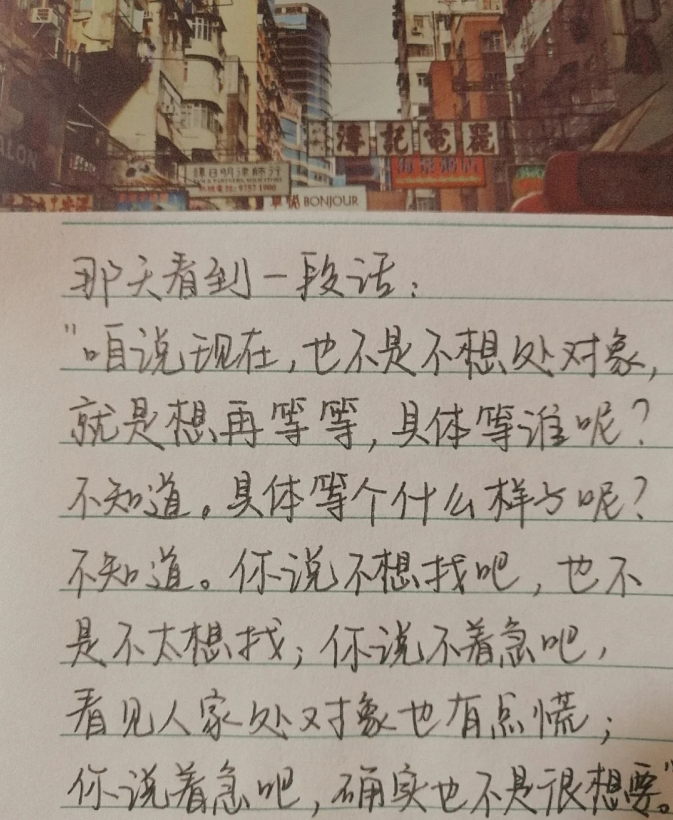 ALON
濤記電器
譚日明律師行
9757 1000
卓悦 BONJOUR
那天看到一段话：
"咱说现在，也不是不想处对象，
就是想再等等，具体等谁呢？
不知道。具体等个什么样子呢？
不知道。你说不想找吧，也不
是不太想找；你说不着急吧，
看见人家处对象也有点慌；
你说着急吧，确实也不是很想要。"